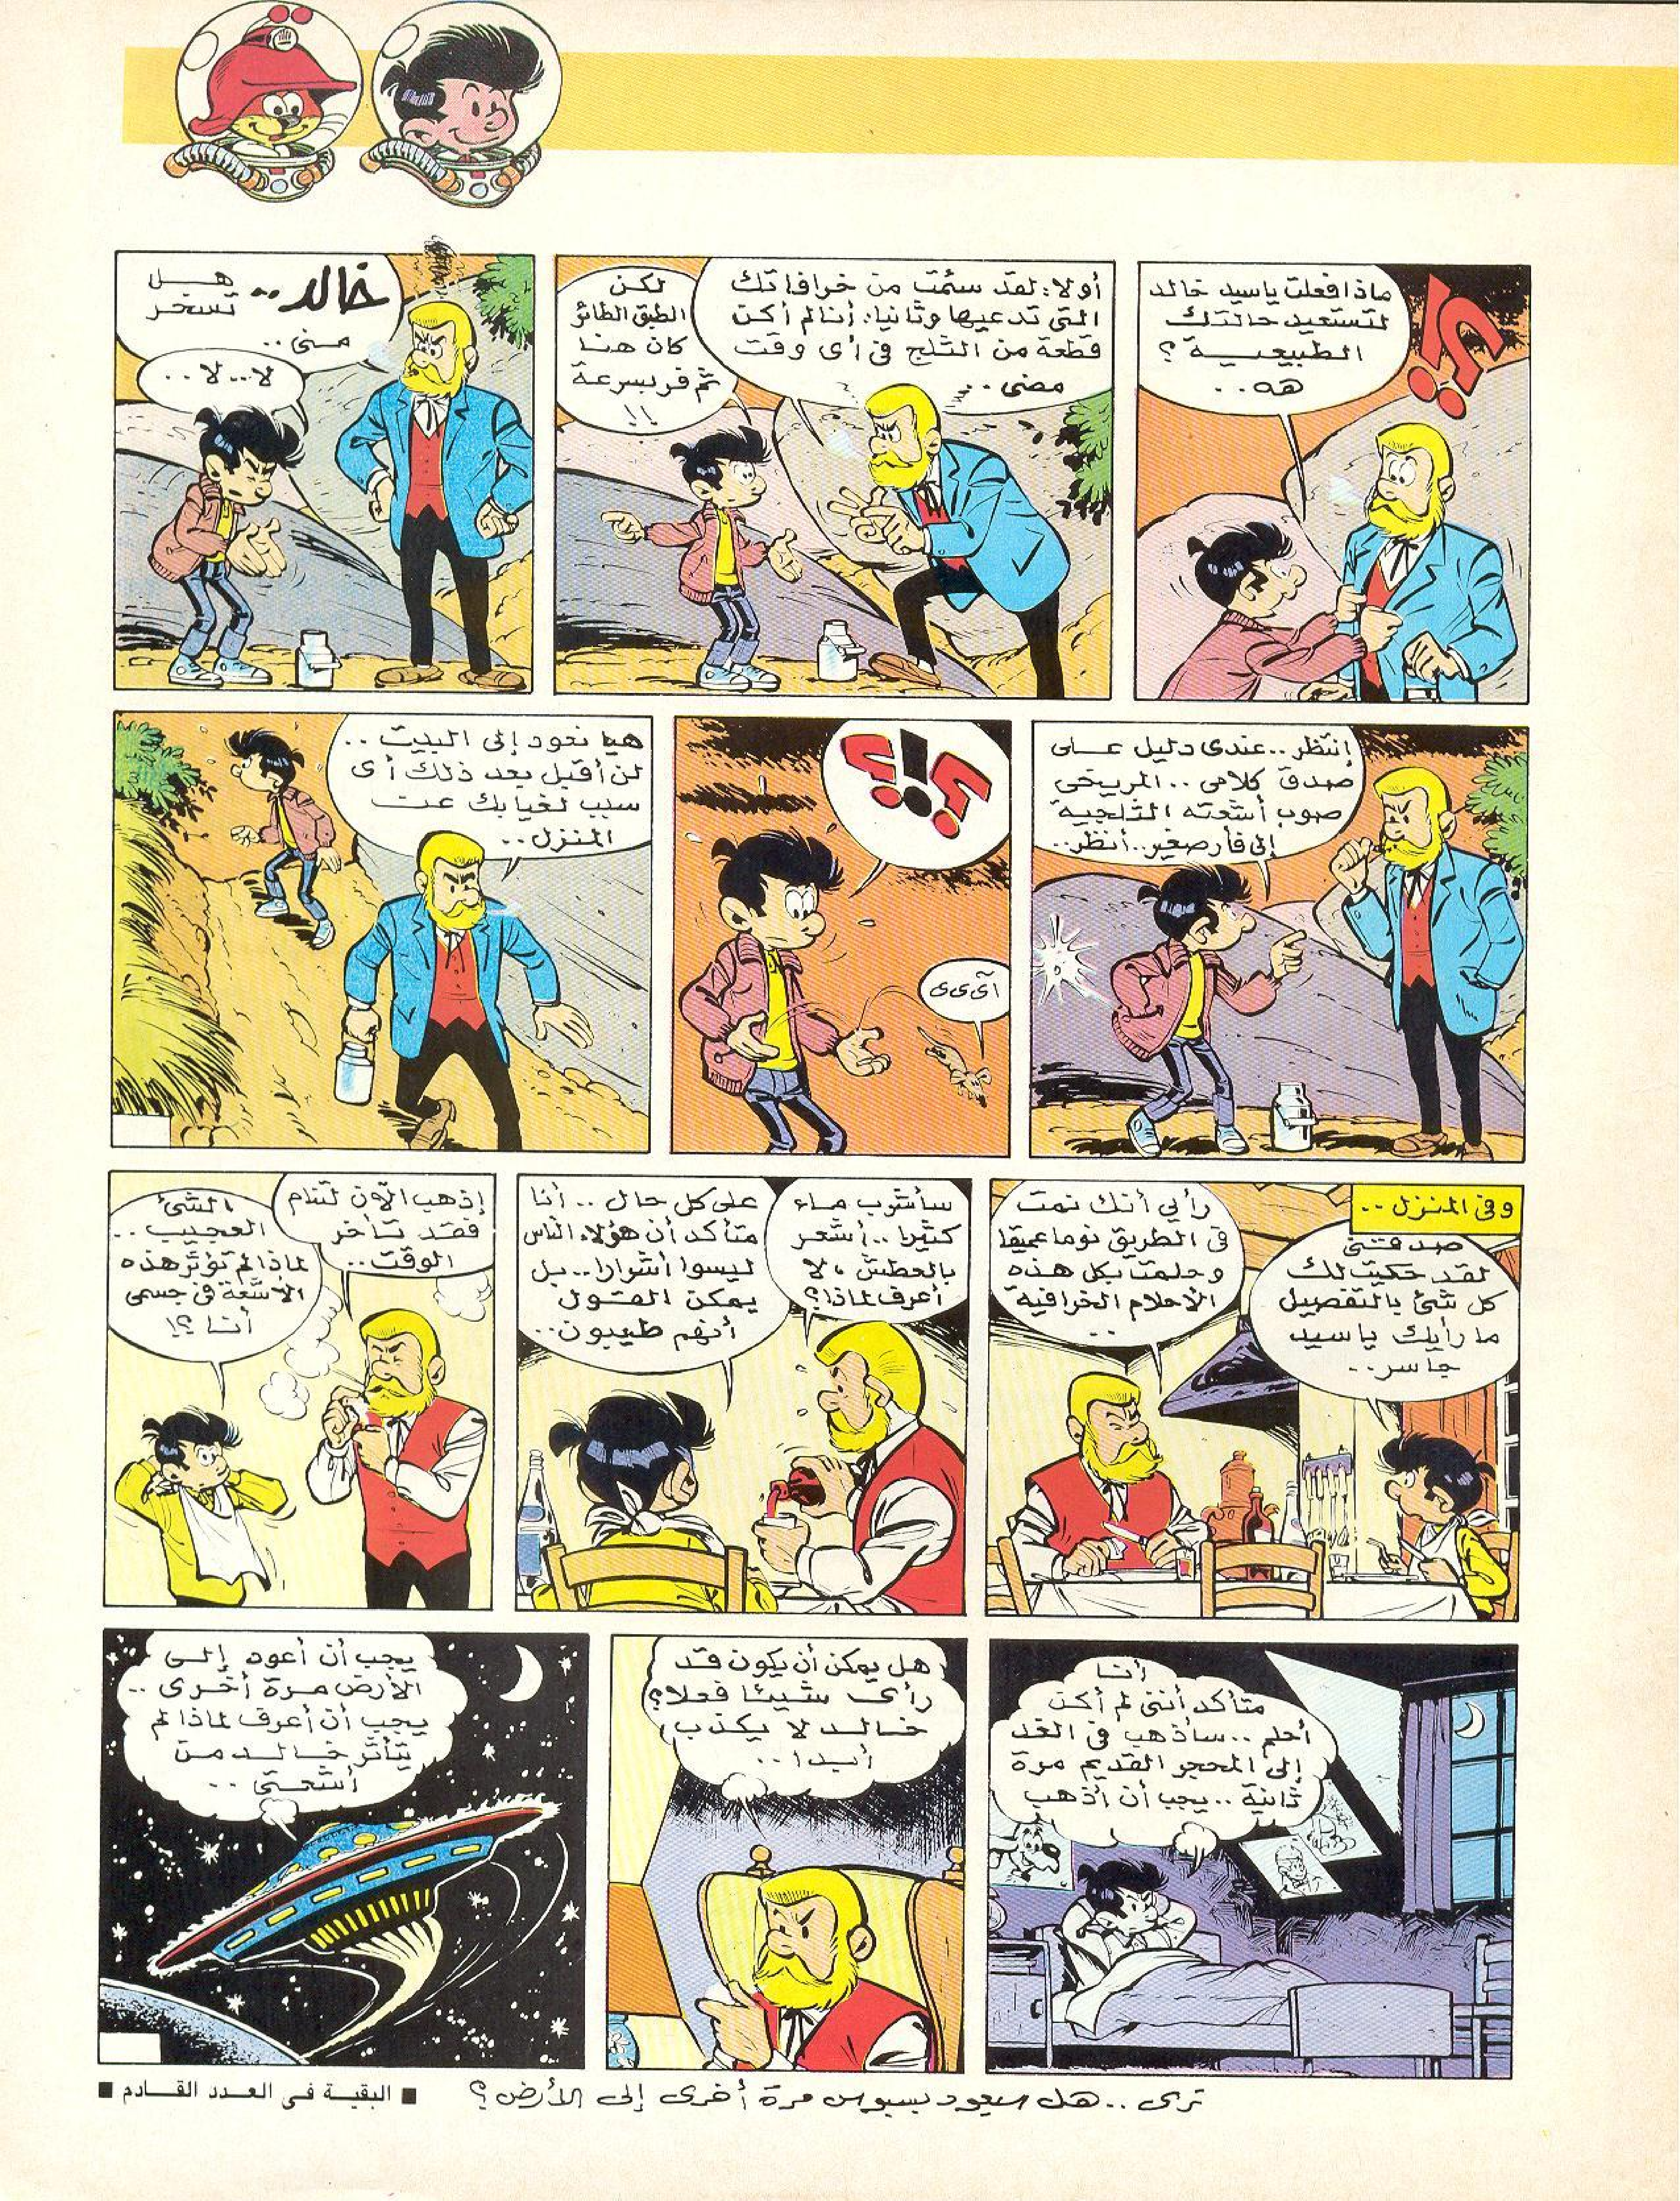 ماذا فعلت ياسيد خالد
لتستعيد حالتك
الطبيعية ؟
هه ..
؟!
أولا : لقد سئمت من خرافاتك
التى تدعيها وثانيا : أنا لم أكن
قطعة من الثلج فى أى وقت
مضى ..
لكن
الطبق الطائر
كان هنا
ثم فر بسرعة
!!
خالد ..
هل
تسخر
منى ..
لا .. لا ..
إنتظر .. عندى دليل على
صدق كلامى .. المريخى
صوب أشعته الثلجية
إلى فأر صغير .. أنظر ..
؟!؟
آىىى
هيا نعود إلى البيت ..
لن أقبل بعد ذلك أى
سبب لغيابك عن
المنزل ..
وفى المنزل ..
صدقنى
لقد حكيت لك
كل شئ بالتفصيل
ما رأيك ياسيد
جاسر ..
رأيي أنك نمت
فى الطريق نوما عميقا
وحلمت بكل هذه
الأحلام الخرافية
..
سأشرب ماء
كثيرا .. أشعر
بالعطش ، لا
أعرف لماذا ؟
على كل حال .. أنا
متأكد أن هؤلاء الناس
ليسوا أشرارا .. بل
يمكن القول
أنهم طيبون ..
إذهب الآن لتنام
فقد تأخر
الوقت ..
الشئ
العجيب ..
لماذا لم تؤثر هذه
الأشعة فى جسمى
أنا ؟!
أنا
متأكد أننى لم أكن
أحلم .. سأذهب فى الغد
إلى المحجر القديم مرة
ثانية .. يجب أن أذهب
هل يمكن أن يكون قد
رأى شيئا فعلا ؟
خالد لا يكذب
أبدا ..
يجب أن أعود إلى
الأرض مرة أخرى ..
يجب أن أعرف لماذا لم
يتأثر خالد من
أشعتى ..
ترى .. هل سيعود بسبوس مرة أخرى إلى الأرض ؟
■ البقية فى العدد القادم ■